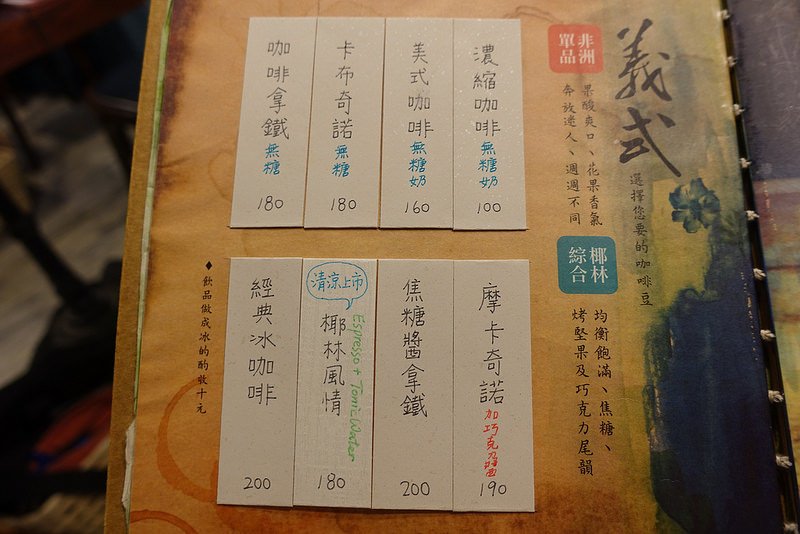 義式
選擇您要的咖啡豆
非洲
單品
果酸爽口、花果香氣
奔放迷人、週週不同
椰林
綜合
均衡飽滿、焦糖、
烤堅果及巧克力尾韻
濃縮咖啡 無糖奶
100
美式咖啡 無糖奶
160
卡布奇諾 無糖
180
咖啡拿鐵 無糖
180
摩卡奇諾 加巧克力醬
190
焦糖醬拿鐵
200
清涼上市
椰林風情
Espresso + Tonic Water
180
經典冰咖啡
200
♦飲品做成冰的酌收十元